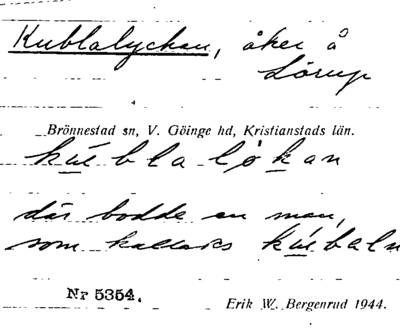 Kublalyckan, åker å
Lörup
Brönnestad sn, V. Göinge hd, Kristianstads län.
kúeblalökan
där bodde en man,
som kallades kúebaln
Nr 5354.
Erik W. Bergenrud 1944.